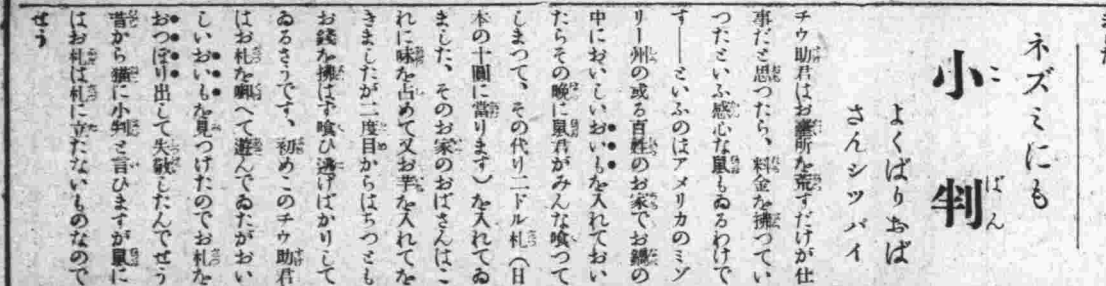 ネズミにも
小判
よくばりおば
さんシツパイ
チウ助君はお臺所を荒すだけが仕
事だと思つたら、料金を拂つてい
つたといふ感心な鼠もゐるわけで
す――といふのはアメリカのミゾ
リー州の或る百姓のお家でお鍋の
中においしいおいもを入れておい
たらその晩に鼠君がみんな喰つて
しまつて、その代り二ドル札(日
本の十圓に當ります)を入れてゐ
ました、そのお家のおばさんはこ
れに味を占めて又お芋を入れてを
きましたが二度目からはちつとも
お錢を拂はず喰ひ逃げばかりして
ゐるさうです、初めこのチウ助君
はお札を啣へて遊んでゐたがおい
しいおいもを見つけたのでお札を
おつぽり出して失敬したんでせう
昔から猫に小判と言ひますが鼠に
はお札は札に立たないものなので
せう